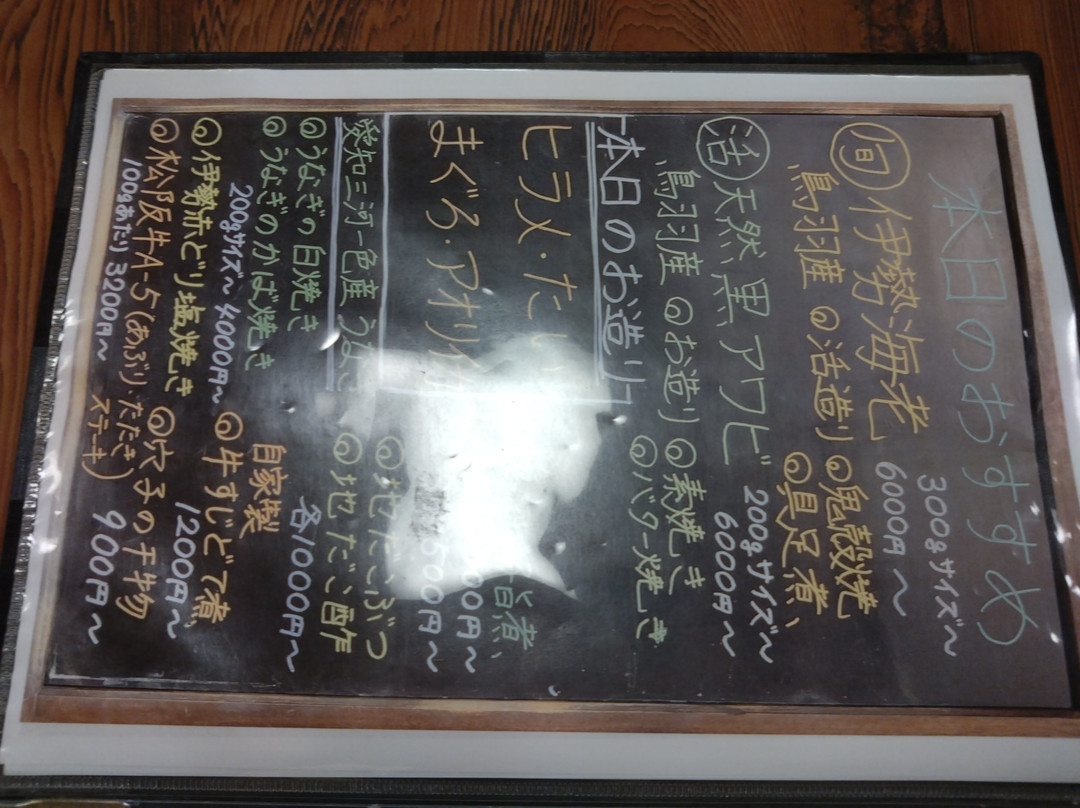 本日のおすすめ
旬 伊勢海老 300gサイズ〜
6000円〜
鳥羽産 ◎活造り ◎鬼殻焼
◎具足煮
活 天然黒アワビ 200gサイズ〜
6000円〜
鳥羽産 ◎お造り ◎素焼き
◎バター焼き
本日のお造り
ヒラメ・たい
まぐろ・アオリイカ
旨煮
00円〜
500円〜
愛知三河一色産 うなぎ
◎うなぎの白焼き
◎うなぎのかば焼き
200gサイズ〜 4000円〜
◎地だこぶつ
◎地だこ酢
各1000円〜
◎伊勢赤どり塩焼き
自家製
◎牛すじどて煮
1200円〜
◎松阪牛A-5(あぶり・たたき
ステーキ)
100gあたり 3200円〜
◎穴子の干物
900円〜